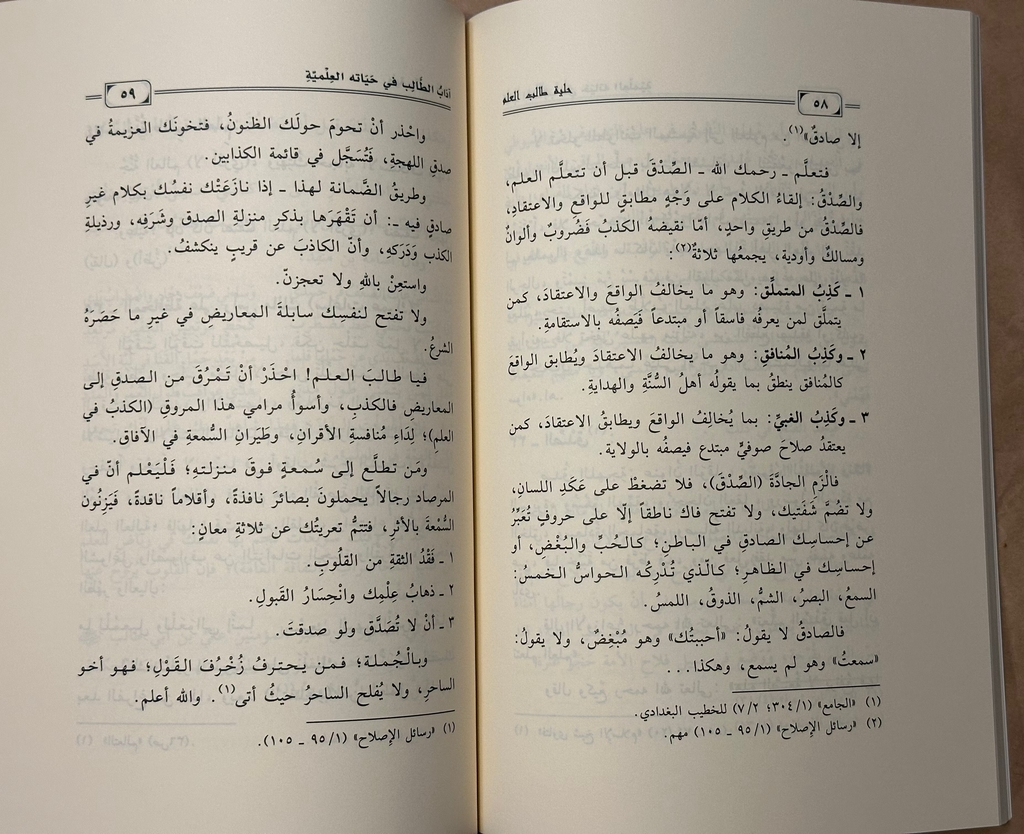 حلية طالب العلم
٥٨
إلا صادقٌ»(١).
فتعلَّم ـ رحمك الله ـ الصِّدْقَ قبل أن تتعلَّم العلم،
والصِّدْقُ: إلقاءُ الكلام على وَجْهٍ مطابقٍ للواقع والاعتقادِ،
فالصِّدْقُ من طريقٍ واحدٍ، أمّا نقيضهُ الكذبُ فَضُروبٌ وألوانٌ
ومسالكُ وأودية، يجمعُها ثلاثةٌ(٢):
١ ـ كَذِبُ المتملِّق: وهو ما يخالفُ الواقعَ والاعتقادَ، كمن
يتملَّق لمن يعرفُه فاسقاً أو مبتدعاً فَيَصفُه بالاستقامةِ.
٢ ـ وكَذِبُ المُنافقِ: وهو ما يخالفُ الاعتقادَ ويُطابق الواقعَ
كالمُنافق ينطقُ بما يقولُه أهلُ السُّنَّةِ والهدايةِ.
٣ ـ وكَذِبُ الغبيِّ: بما يُخالِفُ الواقعَ ويطابقُ الاعتقادَ، كمن
يعتقدُ صلاحَ صوفيٍّ مبتدع فيصفُه بالولاية.
فالْزَمِ الجادَّةَ (الصِّدْقَ)، فلا تضغطْ على عَكَدِ اللسانِ،
ولا تضُمَّ شَفَتيك، ولا تفتح فاك ناطقاً إلّا على حروفٍ تُعَبِّرُ
عن إحساسِك الصادقِ في الباطنِ؛ كالحُبِّ والبُغْضِ، أو
إحساسِك في الظاهرِ؛ كالّذي تُدْرِكُه الحواسُّ الخمسُ:
السمعُ، البصرُ، الشمُّ، الذوقُ، اللمسُ.
فالصادقُ لا يقولُ: «أحببتُك» وهو مُبْغِضٌ، ولا يقولُ:
«سمعتُ» وهو لم يسمع، وهكذا...
(١) «الجامع» (٣٠٤/١؛ ٧/٢) للخطيب البغدادي.
(٢) «رسائل الإصلاح» (٩٥/١ ـ ١٠٥) مهم.
آدَابُ الطَّالِب في حَيَاته العِلْميّةِ
٥٩
واحْذر أنْ تحومَ حولَك الظنونُ، فتخونَك العزيمةُ في
صدقِ اللهجةِ، فَتُسَجَّل في قائمة الكذابين.
وطريقُ الضَّمانة لهذا ـ إذا نازَعَتْك نفسُك بكلام غيرِ
صادقٍ فيه ـ: أن تَقْهَرَها بذكرِ منزلةِ الصدق وشَرَفِه، ورذيلةِ
الكذب وَدَرَكهِ، وأنّ الكاذبَ عن قريبٍ ينكشفُ.
واستعِنْ باللهِ ولا تعجزنّ.
ولا تفتح لنفسِك سابلةَ المعاريضِ في غيرِ ما حَصَرَهُ
الشرعُ.
فيا طالبَ العلم! احْذَرْ أنْ تَمْرُقَ من الصدقِ إلى
المعاريضِ فالكذبِ، وأسوأُ مرامي هذا المروقِ (الكذبُ في
العلمِ)؛ لِدَاءِ مُنافسةِ الأقرانِ، وطَيَرانِ السُّمعةِ في الآفاق.
ومَن تطلَّع إلى سُمعةٍ فوقَ منزلتهِ؛ فَلْيَعْلم أنّ في
المرصاد رجالاً يحملونَ بصائرَ نافذةً، وأقلاماً ناقدةً، فَيَزِنُون
السُّمْعَةَ بالأثرِ، فتتمُّ تعريتُك عن ثلاثةِ معانٍ:
١ ـ فَقْدُ الثقةِ من القلُوبِ.
٢ ـ ذهابُ عِلْمِك وانْحِسَارُ القَبولِ.
٣ ـ أنْ لا تُصَدَّق ولو صدقتَ.
وبالْجُملة؛ فمن يحترفُ زُخْرُفَ القَوْلِ؛ فهو أخو
الساحرِ، ولا يُفلح الساحرُ حيثُ أتى(١). والله أعلم.
(١) «رسائل الإصلاح» (٩٥/١ ـ ١٠٥).